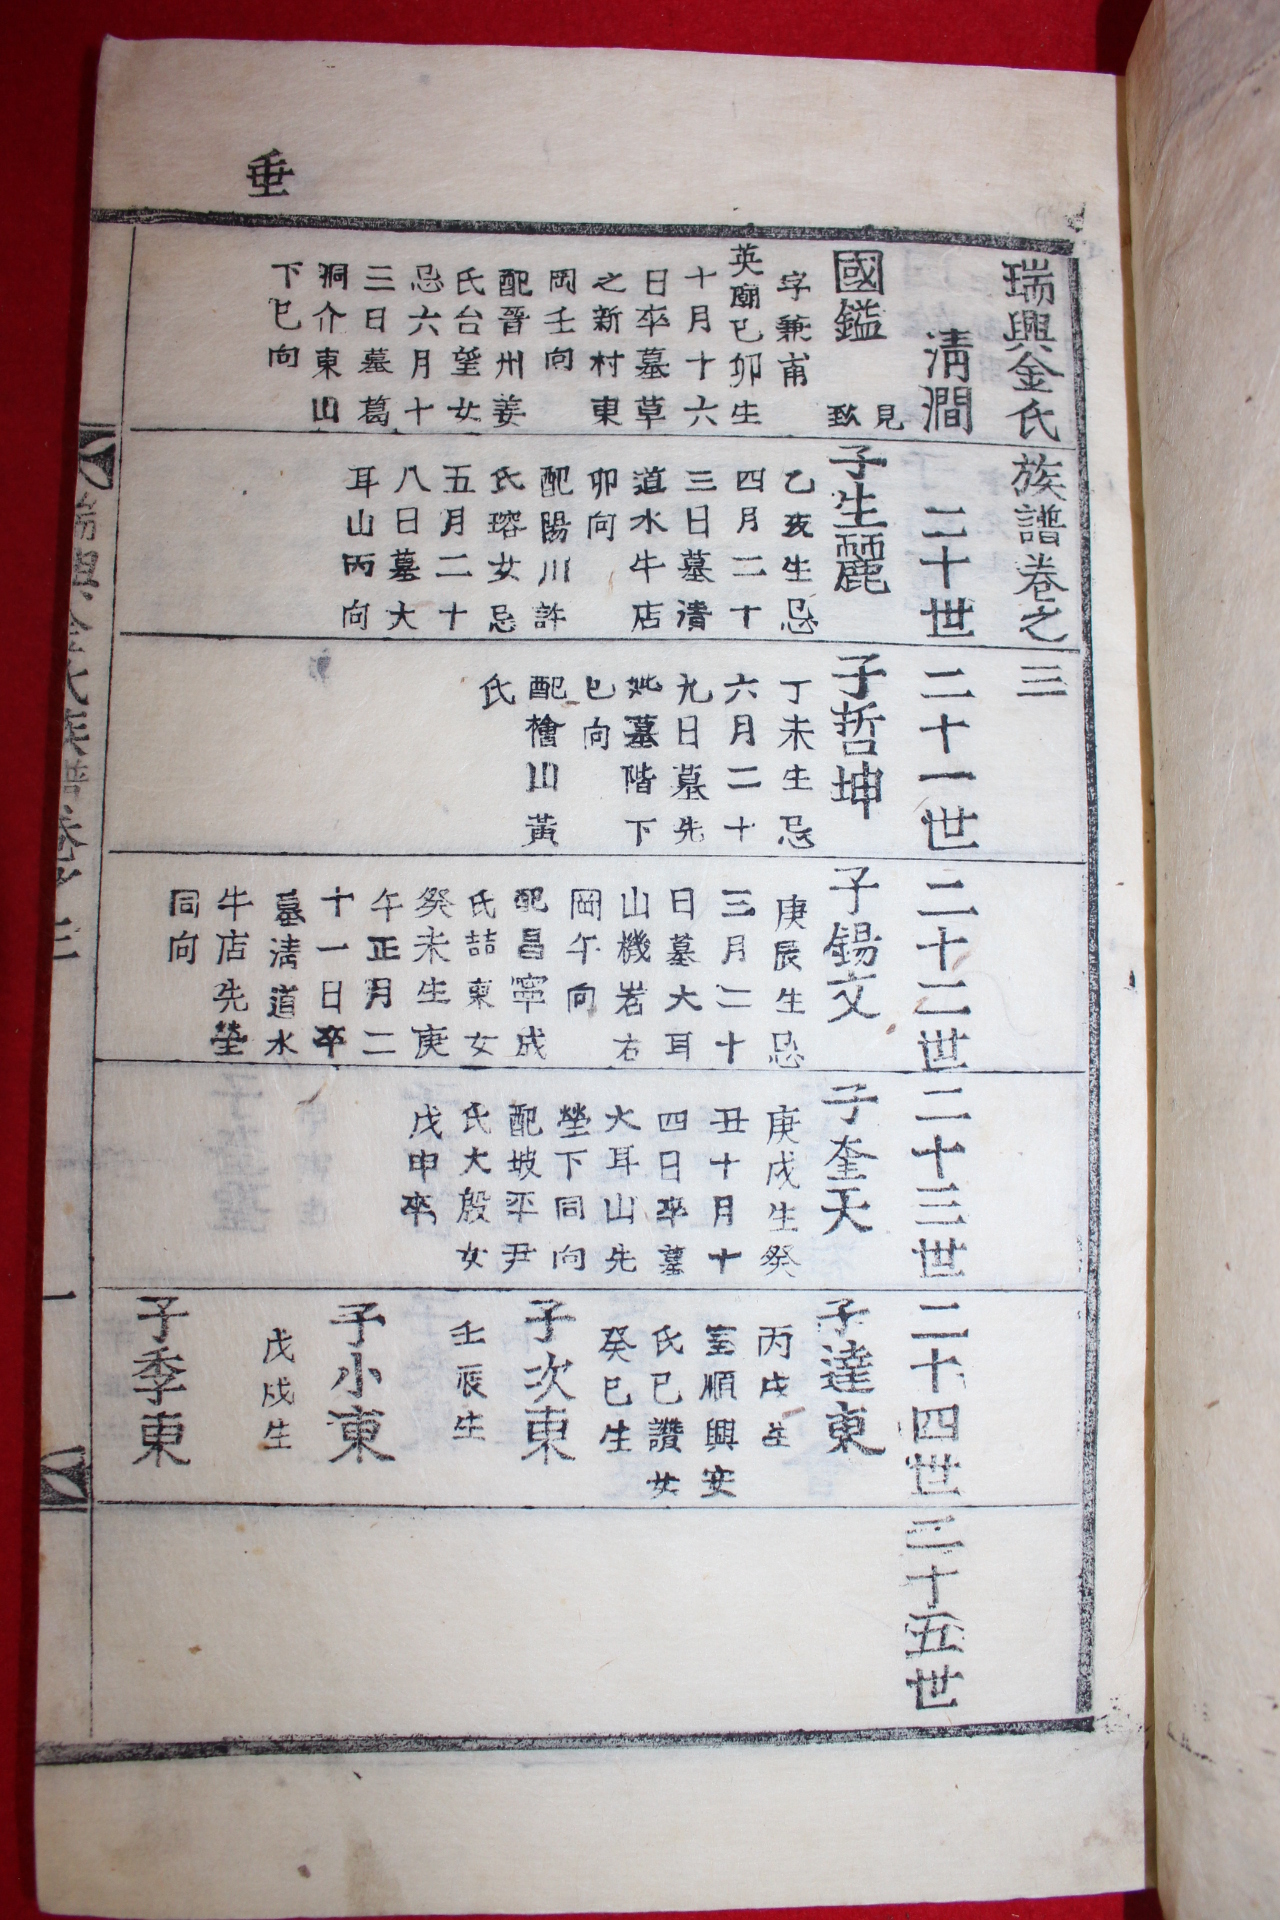 垂
瑞興金氏族譜卷之三
淸澗
二十世
二十一世
二十二世
二十三世
二十四世
二十五世
國鎰
見
㺶
字兼甫
英廟己卯生
十月十六
日卒墓草
之新村東
岡壬向
配晋州姜
氏台望女
忌六月十
三日墓葛
洞介東山
下巳向
子生麗
乙亥生忌
四月二十
三日墓淸
道水牛店
卯向
配陽川許
氏瑢女忌
五月二十
八日墓大
耳山丙向
子哲坤
丁未生忌
六月二十
九日墓先
妣墓階下
巳向
配檜山黃
氏
子錫文
庚辰生忌
三月二十
日墓大耳
山機岩右
岡午向
配昌寧成
氏喆東女
癸未生庚
午正月二
十一日卒
墓淸道水
牛店先塋
同向
子奎天
庚戌生癸
丑十月十
四日卒墓
大耳山先
塋下同向
配坡平尹
氏大殷女
戊申卒
子達東
丙戌生
室順興安
氏巳讚女
癸巳生
子次東
壬辰生
子小東
戊戌生
子季東
瑞興金氏族譜卷之三
一